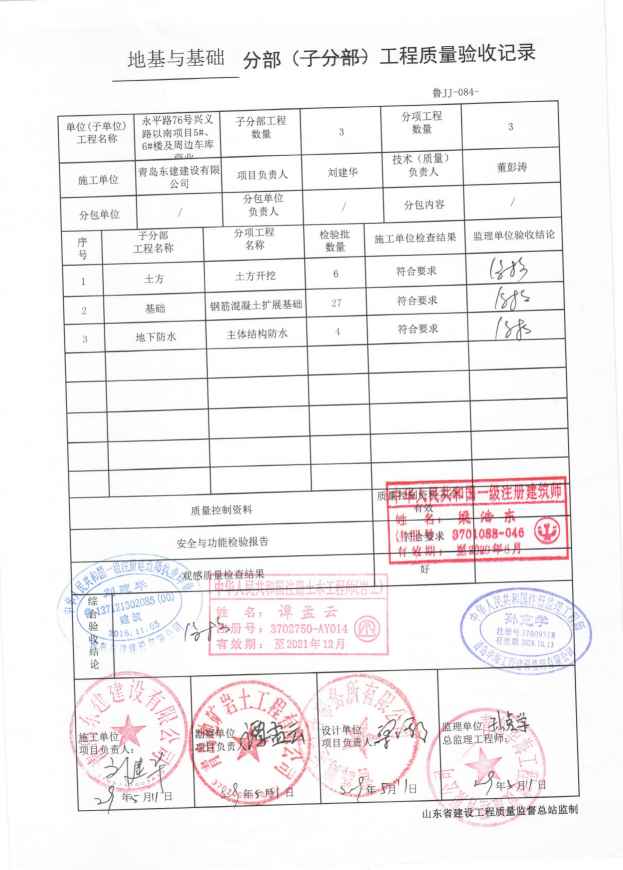 地基与基础 分部（子分部）工程质量验收记录
鲁JJ-084-
单位(子单位)工程名称 永平路76号兴义路以南项目5#、6#楼及周边车库 子分部工程数量 3 分项工程数量 3
施工单位 青岛东建建设有限公司 项目负责人 刘建华 技术（质量）负责人 董彭涛
分包单位 / 分包单位负责人 / 分包内容 /
序号 子分部工程名称 分项工程名称 检验批数量 施工单位检查结果 监理单位验收结论
1 土方 土方开挖 6 符合要求 合格
2 基础 钢筋混凝土扩展基础 27 符合要求 合格
3 地下防水 主体结构防水 4 符合要求 合格
质量控制资料 有效
中华人民共和国一级注册建筑师
姓 名：梁浩东
3701088-046
有效期：至2020年8月
安全与功能检验报告 符合要求
观感质量检查结果 好
综合验收结论 合格
刘建华
建筑
2016.11.03
中华人民共和国注册土木工程师(岩土)
姓 名：谭孟云
注册号：3702750-AY014
有效期：至2021年12月
中华人民共和国注册监理工程师
孙克学
施工单位 项目负责人： 刘建华
勘察单位 项目负责人 谭孟云
设计单位 项目负责人
监理单位 总监理工程师： 孙克学
年5月11日
年5月11日
年5月11日
年5月11日
山东省建设工程质量监督总站监制